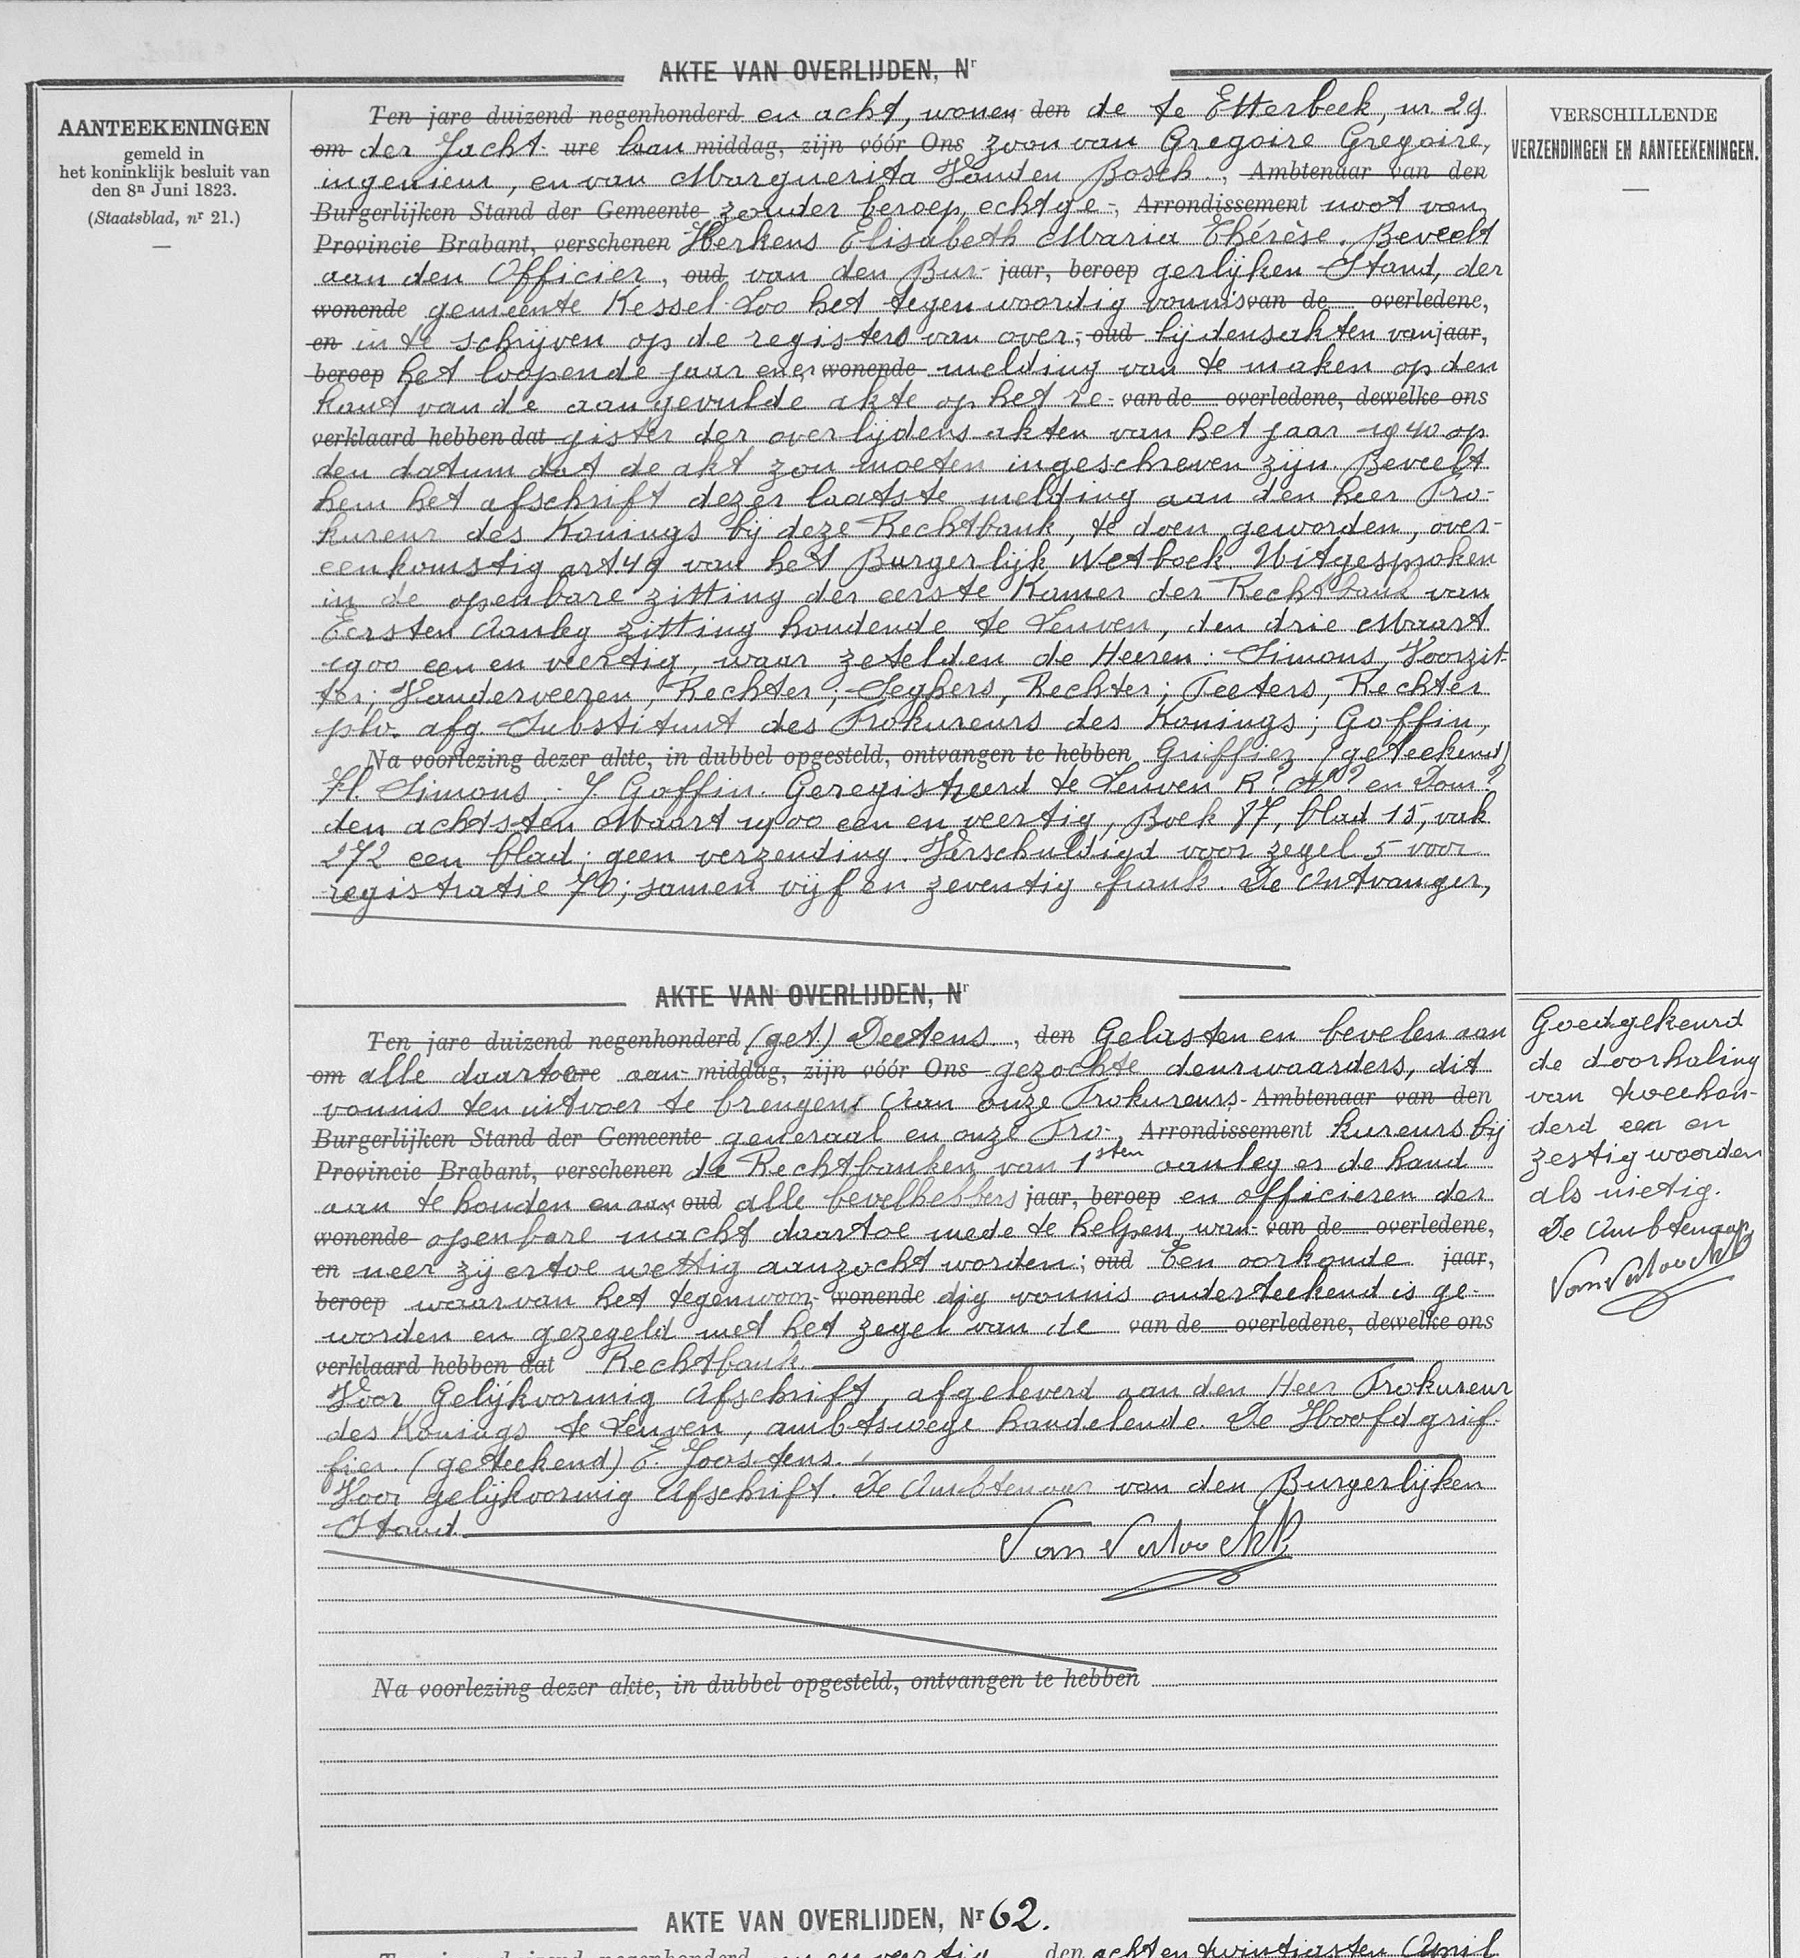 AKTE VAN OVERLIJDEN, Nr
AANTEEKENINGEN
gemeld in
het koninklijk besluit van
den 8n Juni 1823.
(Staatsblad, nr 21.)
VERSCHILLENDE
VERZENDINGEN EN AANTEEKENINGEN.
Ten jare duizend negenhonderd en acht, wonen den de te Etterbeek, nr 29
om der Jacht- ure laan middag, zijn vóór Ons zoon van Gregoire Gregoire,
ingenieur, en van Marguerita Vanden Bosch., Ambtenaar van den
Burgerlijken Stand der Gemeente zonder beroep, echtge-, Arrondissement noot van
Provincie Brabant, verschenen Herkens Elisabeth Maria Thérèse. Beveelt
aan den Officier, oud van den Bur- jaar, beroep gerlijken Stand, der
wonende gemeente Kessel-Loo het tegenwoordig vonnis van de overledene,
en in te schrijven op de registers van over-, oud lijdensakten van jaar,
beroep het loopende jaar en er wonende melding van te maken op den
kant van de aangevulde akte op het re- van de overledene, dewelke ons
verklaard hebben dat gister der overlijdens akten van het jaar 1940 op
den datum dat de akt zou moeten ingeschreven zijn. Beveelt
hem het afschrift dezer laatste melding aan den heer Pro-
kureur des Konings bij deze Rechtbank, te doen geworden, over-
eenkomstig art. 49 van het Burgerlijk Wetboek. Uitgesproken
in de openbare zitting der eerste Kamer der Rechtbank van
Eersten Aanleg zitting houdende te Leuven, den drie Maart
1900 een en veertig, waar zetelden de Heeren: Simons, Voorzit-
ter; Vanderveeren, Rechter; Seghers, Rechter; Peeters, Rechter
plv. afg. Substituut des Prokureurs des Konings; Goffin,
Na voorlezing dezer akte, in dubbel opgesteld, ontvangen te hebben Griffier. (geteekend)
Simons - J Goffin. Geregistreerd te Leuven en Dom.
den achtsten Maart 1900 een en veertig, Boek 87, blad 15, vak
272 een blad; geen verzending. Verschuldigd voor zegel 5 voor
registratie 70; samen vijf en zeventig frank. De Ontvanger,
AKTE VAN OVERLIJDEN, Nr
Ten jare duizend negenhonderd (get.) Deetens, den Gelasten en bevelen aan
om alle daartoe ure aan- middag, zijn vóór Ons gezochte deurwaarders, dit
vonnis ten uitvoer te brengen; Aan onze Prokureurs- Ambtenaar van den
Burgerlijken Stand der Gemeente generaal en onze Pro-, Arrondissement kureurs bij
Provincie Brabant, verschenen de Rechtbanken van 1sten aanleg er de hand
aan te houden en aan oud alle bevelhebbers jaar, beroep en officieren der
wonende openbare macht daartoe mede te helpen, wan- van de overledene,
en neer zij ertoe wettig aanzocht worden; oud Een oorkonde jaar,
beroep waarvan het tegenwoor- wonende dig vonnis onderteekend is ge-
worden en gezegeld met het zegel van de van de overledene, dewelke ons
verklaard hebben dat Rechtbank.
Voor Gelijkvormig Afschrift, afgeleverd aan den Heer Prokureur
des Konings te Leuven, ambtswege handelende. De Hoofdgrif-
fier. (geteekend) E. Joostens.
Voor gelijkvormig Afschrift. De Ambtenaar van den Burgerlijken
Stand.
Na voorlezing dezer akte, in dubbel opgesteld, ontvangen te hebben
Goedgekeurd
de doorhaling
van tweehon-
derd een en
zestig woorden
als nietig.
De Ambtenaar
AKTE VAN OVERLIJDEN, Nr 62.
Ten jare duizend negenhonderd een en veertig den acht en twintigsten April